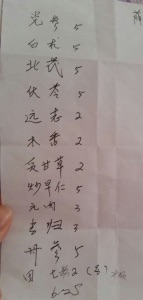 党参 5
白术 5
北芪 5
伏苓 5
远志 2
木香 2
炙甘草 2
炒早仁 5
元肉 3
当归 3
丹参 5
田七 2
6.25